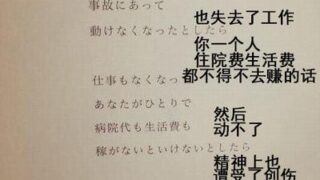 事故にあって
動けなくなったとしたら
也失去了工作
你一个人
住院费生活费
仕事もなくなっ
都不得不去赚的话
あなたがひとりで
病院代も生活費も
稼がないといけないとしたら
然后
动不了
精神上也
遭受了创伤